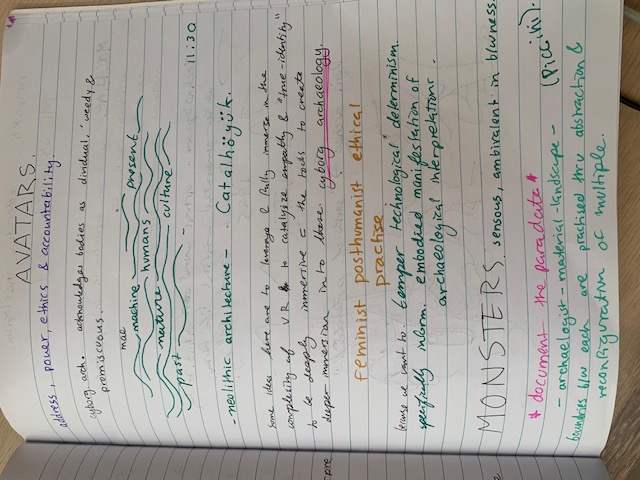 AVATARS.
address, power, ethics & accountability.
cyborg arch. acknowledges bodies as dividual, 'weedy &
promiscuous.
mae
machine present
humans
nature culture
past
11:30
- neolithic architecture - Catalhöyük.
some ideas here are to leverage & fully immerse in the
complexity of VR to catalyize empathy & "true-identity"
to be deeply inmersive c the tools to create
deeper immersion into these. cyborg archaeology.
feminist posthumanist ethical
practise
because we want to. temper technological determinism.
specifically inform. embodied manifestation of
archaeological interpretations.
MONSTERS. sensous, ambivalent in b/wness.
* document the paradata *
(Piccini).
- archaelogist - material - landscape -
boundries b/w each are practised thru abstraction &
reconfiguration of multiple.